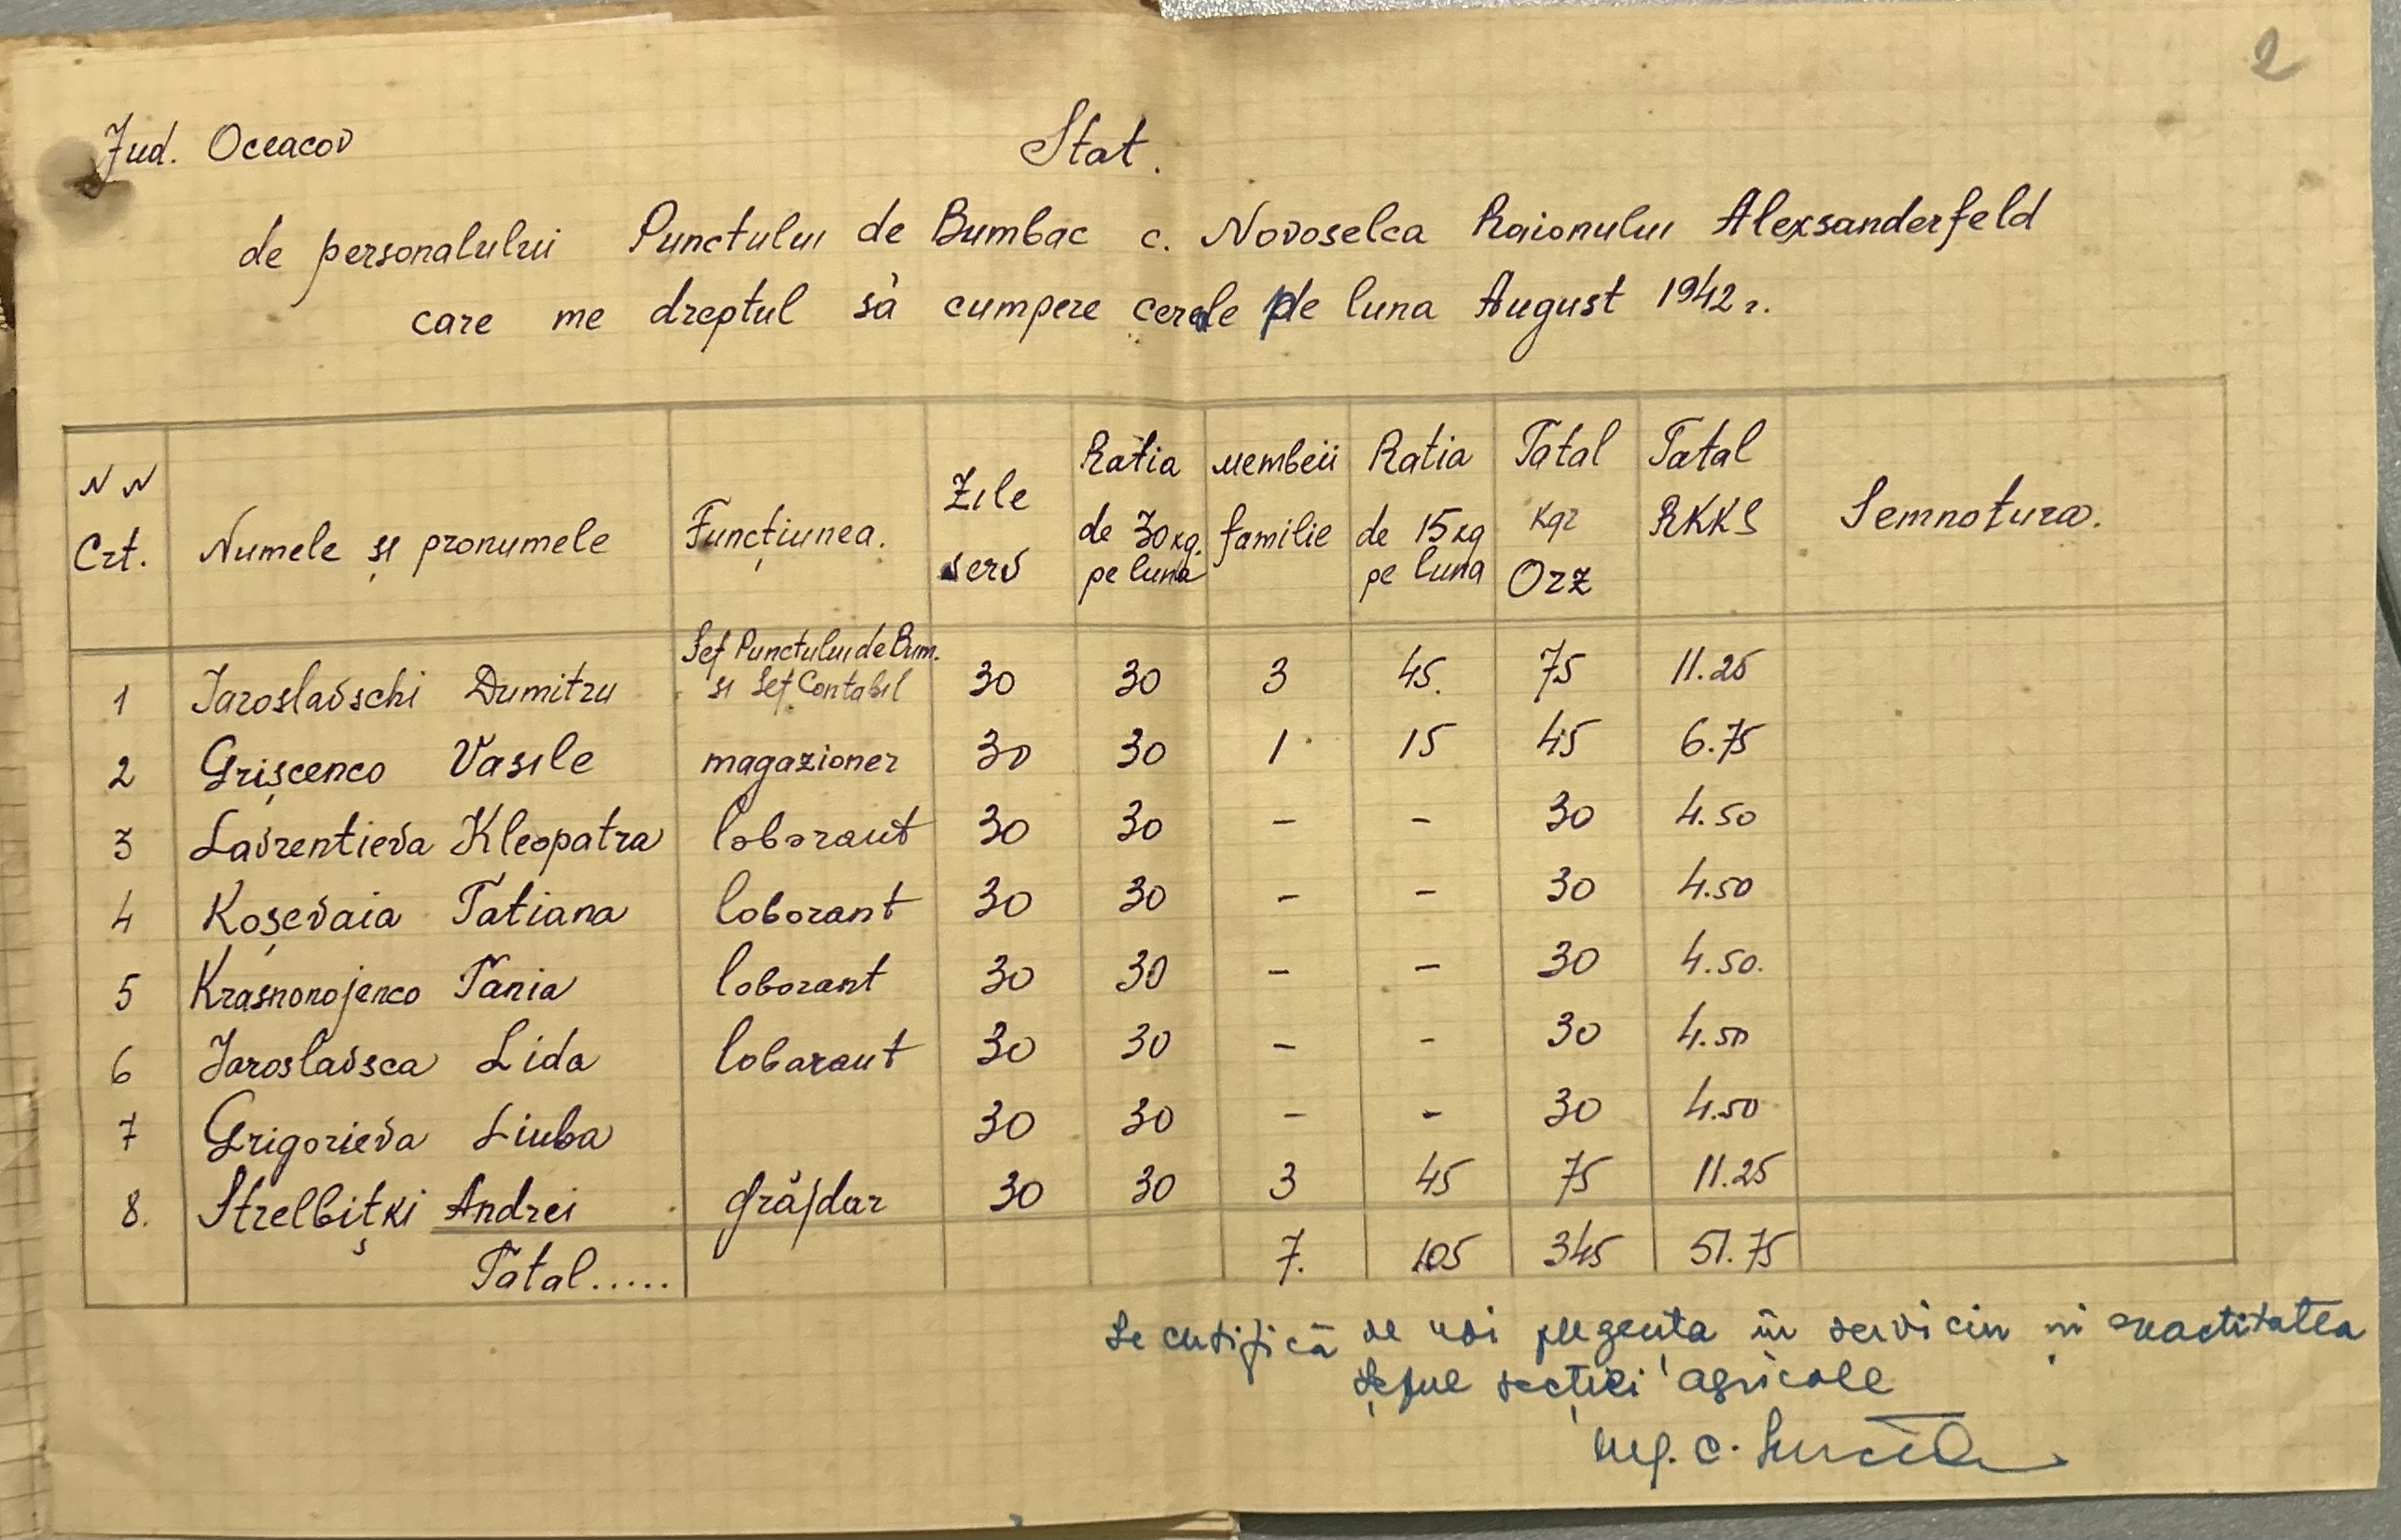 2
Jud. Oceacov
Stat.
de personalului Punctului de Bumbac c. Novoselca Raionului Alexsanderfeld
care me dreptul să cumpere cerele pe luna August 1942 г.
N N Crt. | Numele și pronumele | Funcțiunea. | Zile serv | Ratia de 30 kg. pe luna | Membeii familie | Ratia de 15 kg pe luna | Tatal kgr Orz | Tatal RKKS | Semnotura.
1 Iaroslavschi Dumitru Șef Punctului de Bum. si Șef Contabil 30 30 3 45. 75 11.25
2 Grișcenco Vasile magazioner 30 30 1 15 45 6.75
3 Lavrentieva Kleopatra loborant 30 30 - - 30 4.50
4 Koșevaia Tatiana loborant 30 30 - - 30 4.50
5 Krasnonojenco Tania loborant 30 30 - - 30 4.50.
6 Iaroslavsca Lida loborant 30 30 - - 30 4.50
7 Grigorieva Liuba 30 30 - - 30 4.50
8. Strelbițki Andrei grăjdar 30 30 3 45 75 11.25
Tatal..... 7. 105 345 51.75
Se certifică de noi prezența în serviciu și exactitatea
Șeful secției agricole
Ing. C.